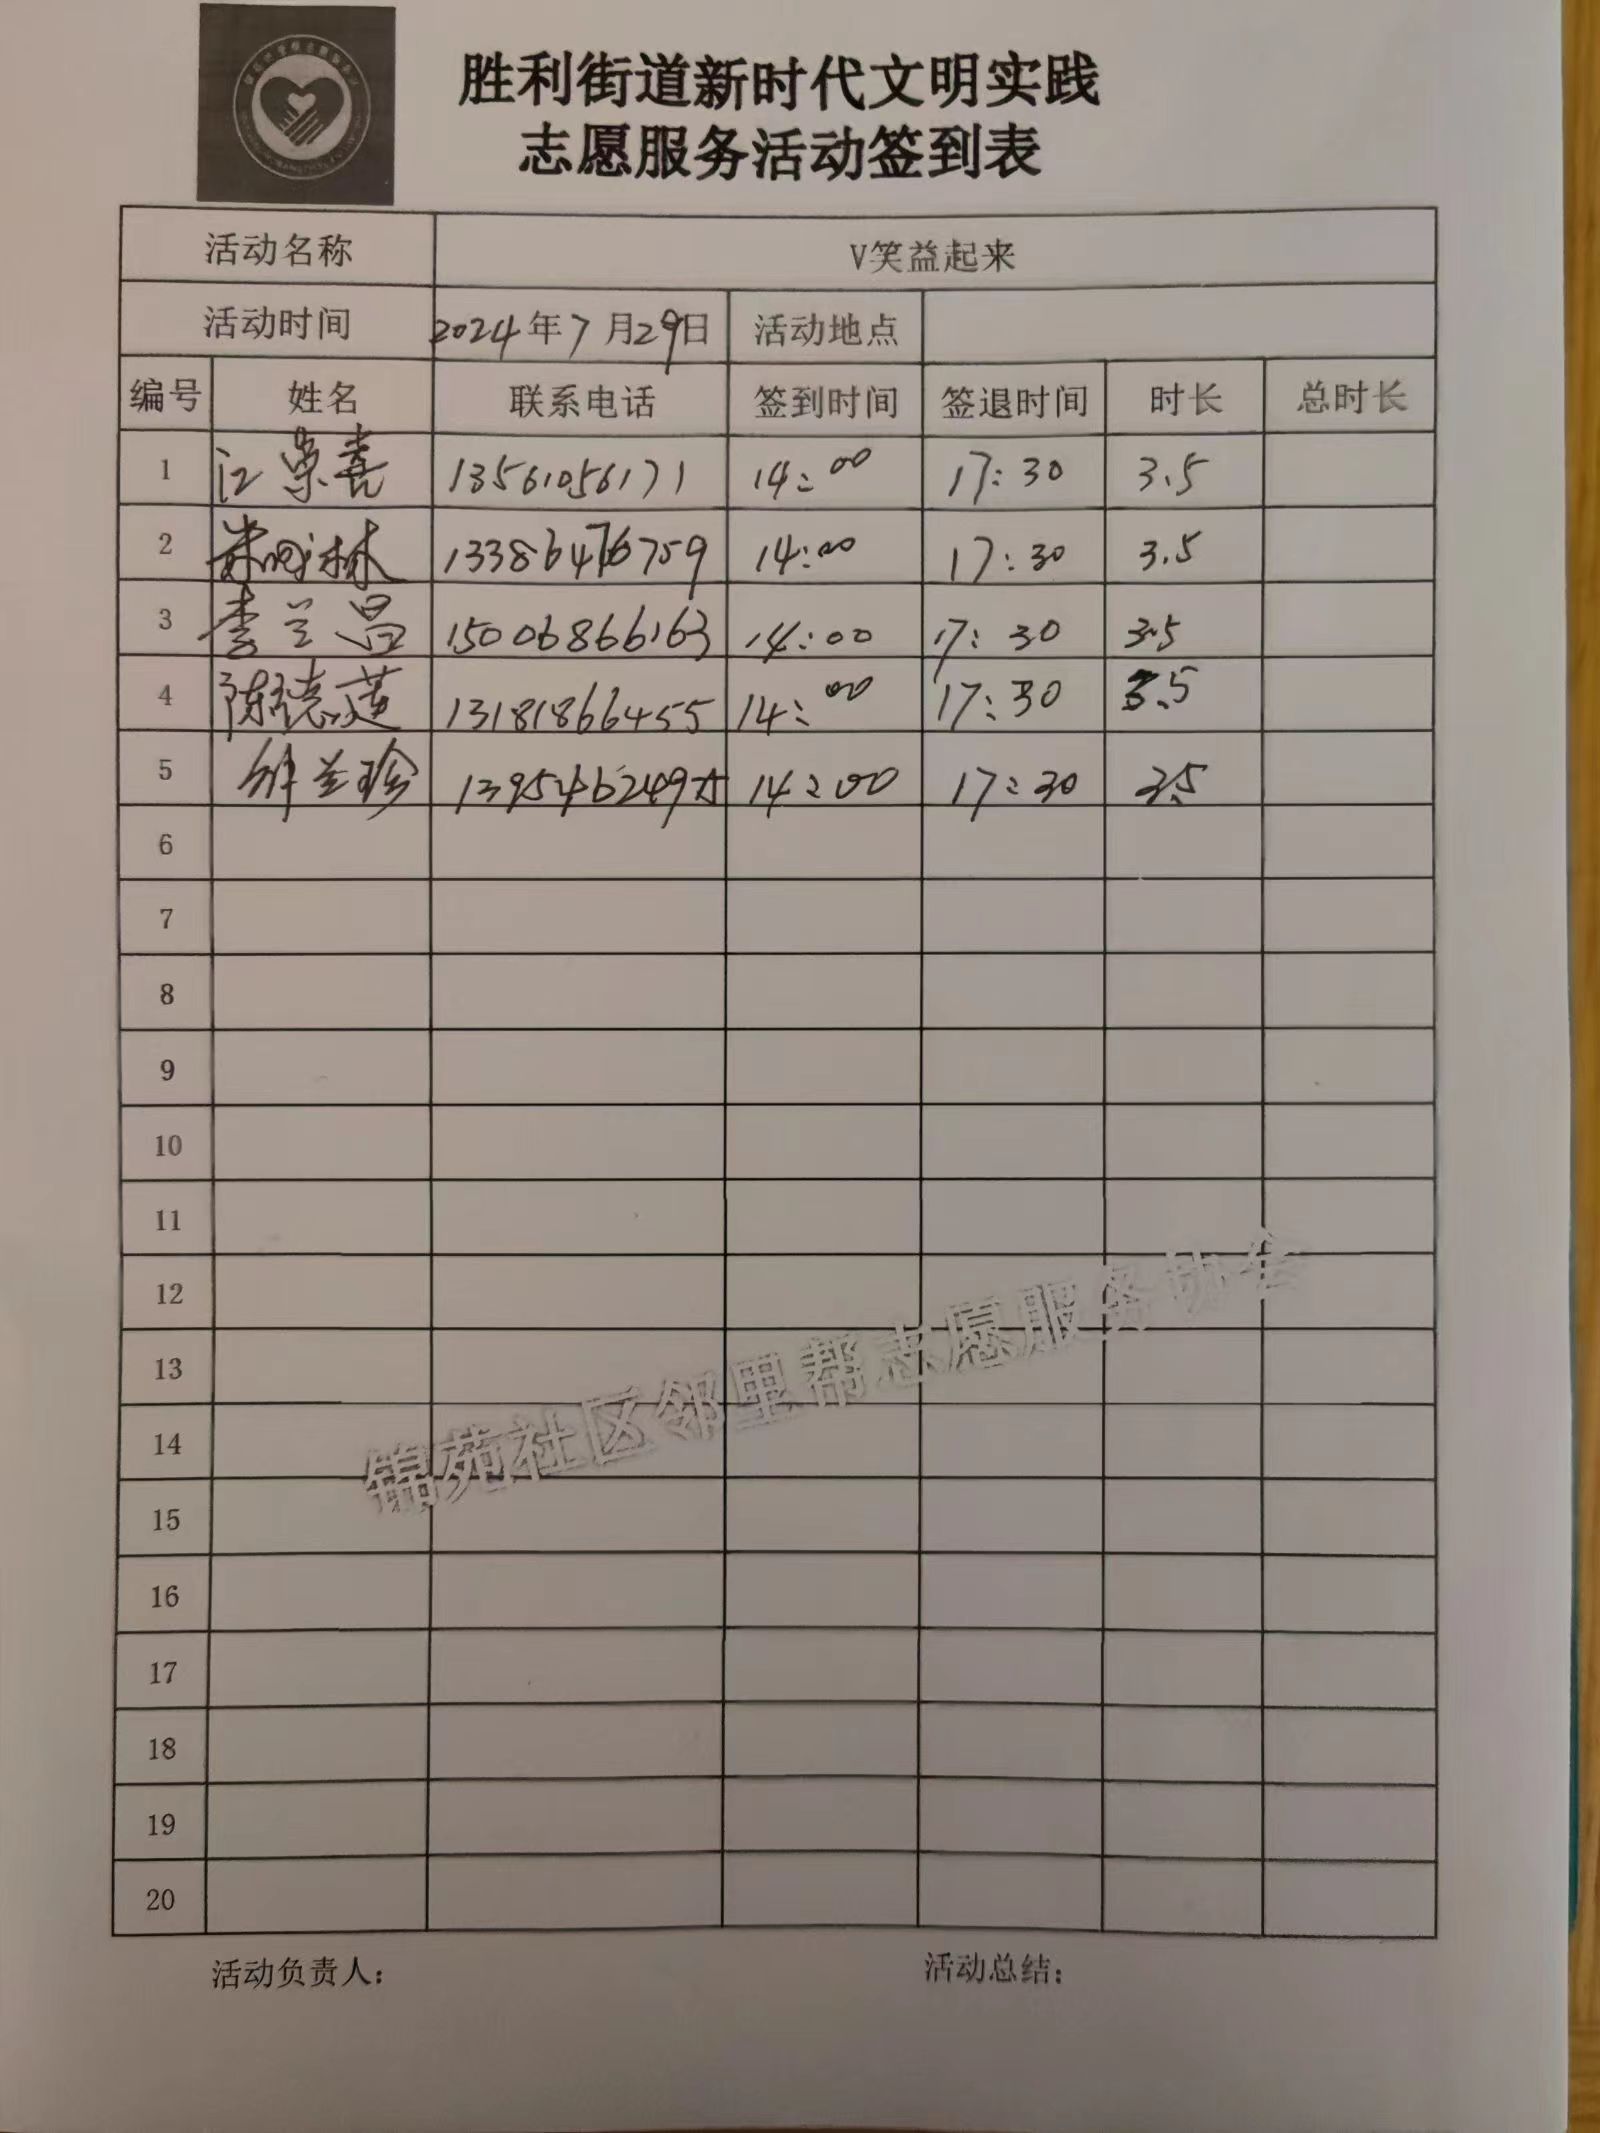 胜利街道新时代文明实践
志愿服务活动签到表
活动名称 V笑益起来
活动时间 2024年7月29日 活动地点
编号 姓名 联系电话 签到时间 签退时间 时长 总时长
1 江荣喜 13561056171 14:00 17:30 3.5
2 13386476759 14:00 17:30 3.5
3 李兰昌 15006866163 14:00 17:30 3.5
4 陈德莲 13181866455 14:00 17:30 3.5
5 兰珍 14:00 17:30 3.5
6
7
8
9
10
11
12
13
14
15
16
17
18
19
20
锦苑社区邻里帮志愿服务协会
活动负责人: 活动总结: